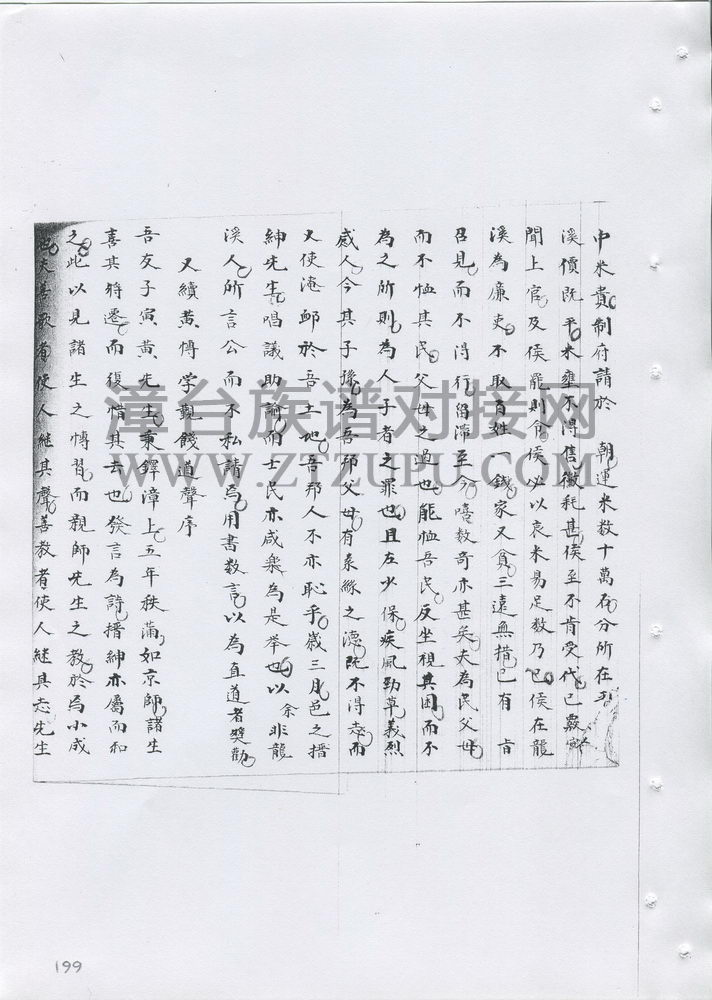 中米貴制府請於　朝運米数十萬石分所在
溪價既平米壅不得售徵耗甚侯至不肯受代已覈
聞上官及侯罷則令侯以以哀米易足数乃已侯在龍
溪為廉吏不取百姓一錢家又貧三遠無措已有　旨
召見而不得行留滯至今噫数奇亦甚矣夫為民父母
而不恤其民父母之過也能恤吾民反坐視其困而不
為之所則為人子者之罪也且左少保疾風勁草義烈
感人今其子孫為吾邦父母有系絲之德既不得幸而
又使淹卹於吾土地吾邦人不亦恥乎歲三月邑之搢
紳先生唱議助論而士民亦咸樂為是举也以余非龍
溪人所言公而不私請為用書数言以為直道者獎勸
又續黃博学觀餞道聲序
吾友子寅黃先生秉鐸漳上五年秩滿如京師諸生
喜其将遷而復惜其去也發言為詩搢紳亦屬而和
之此以見諸生之博習而親師先生之教於為小成
夫善歌者使人継其聲善教者使人継其志先生
199
漳台族谱对接网
WWW.ZTZUPU.COM